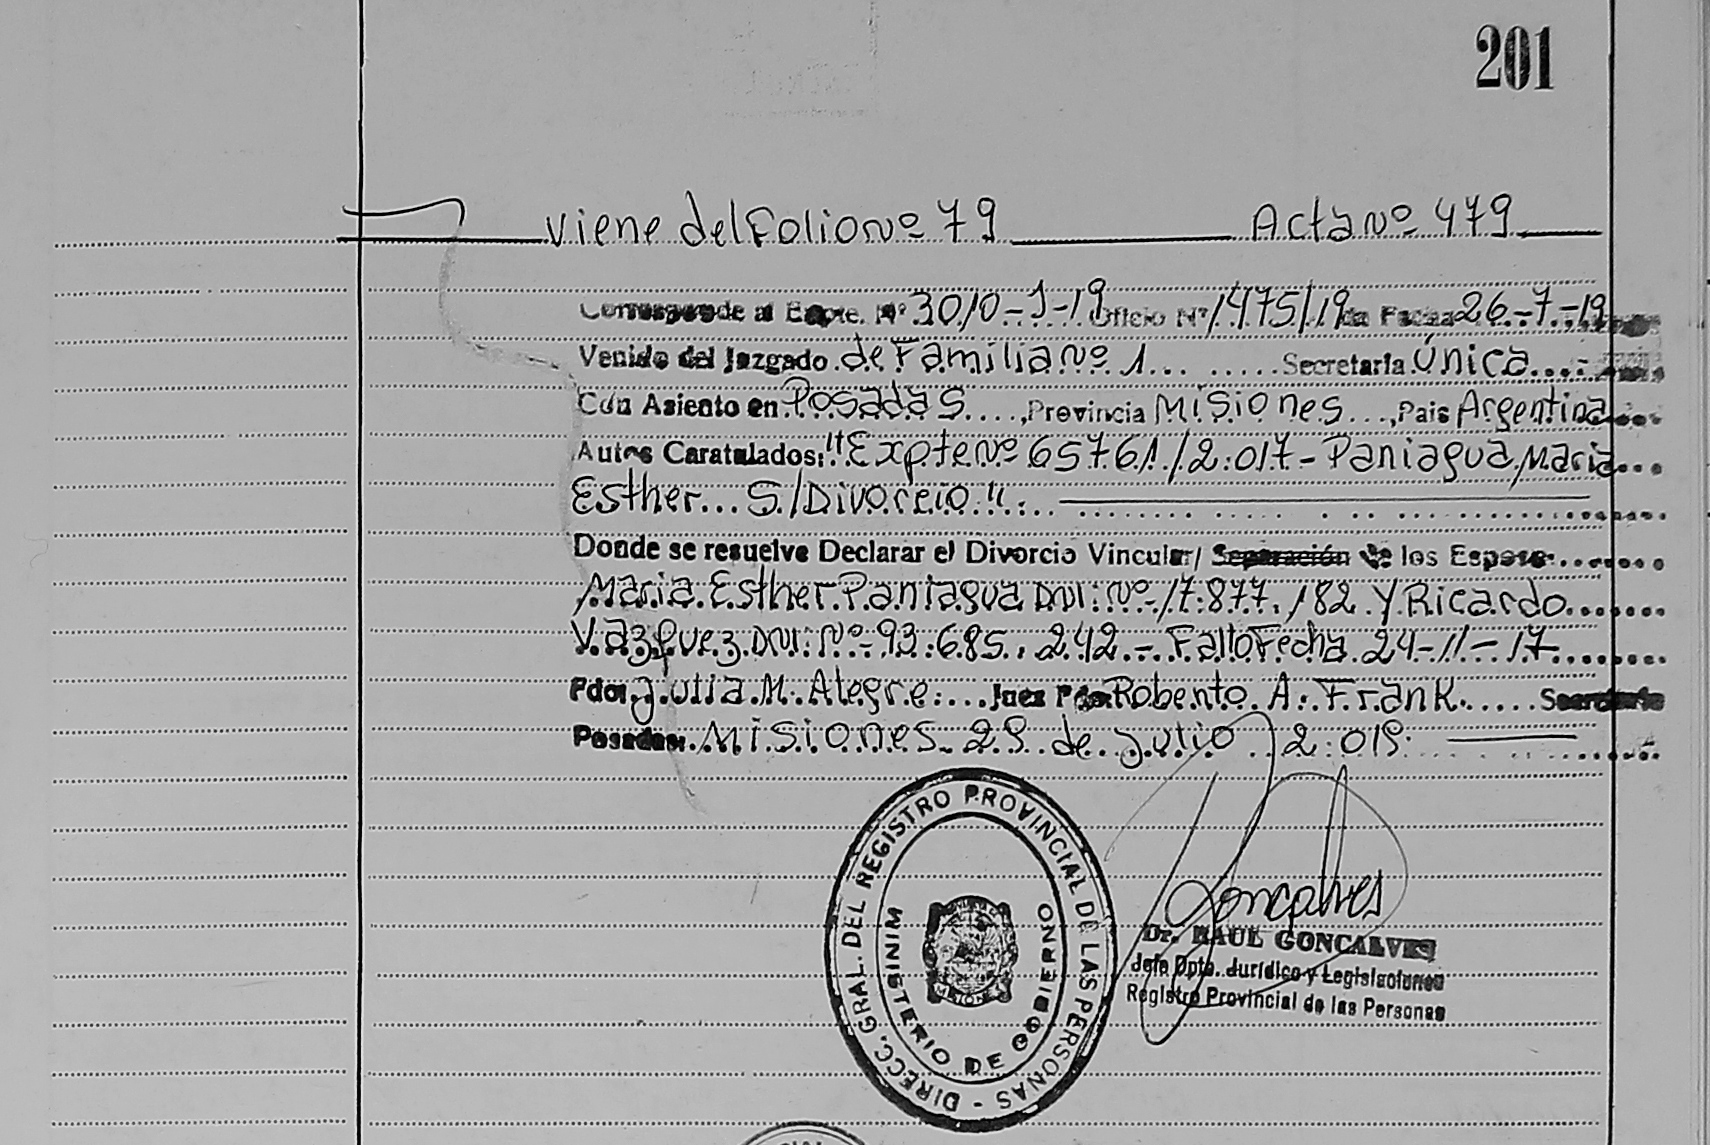 201
Viene del Folio Nº 79 Acta Nº 479
Corresponde al Expte. Nº 3010-J-19 Oficio Nº 1475/19 de Fecha 26-7-19
Venido del Juzgado de Familia Nº 1 Secretaría Única
Con Asiento en Posadas, Provincia Misiones, Pais Argentina
Autos Caratulados: "Expte Nº 65761/2.017- Paniagua, Maria
Esther... S/Divorcio".
Donde se resuelve Declarar el Divorcio Vincular/ Separación de los Esposos
Maria Esther Paniagua DNI: Nº 17.877.182 y Ricardo
Vazquez DNI: Nº 93.685.242.- Fallo Fecha 24-11-17
Fdo: Julia M. Alegre Juez Fdo Roberto A. Frank Secretario
Posadas: Misiones 29 de Julio 2.019
DIRECC. GRAL. DEL REGISTRO PROVINCIAL DE LAS PERSONAS -
MINISTERIO DE GOBIERNO
MISIONES
Goncalves
Dr. RAUL GONCALVES
Jefe Dpto. Jurídico y Legislaciones
Registro Provincial de las Personas